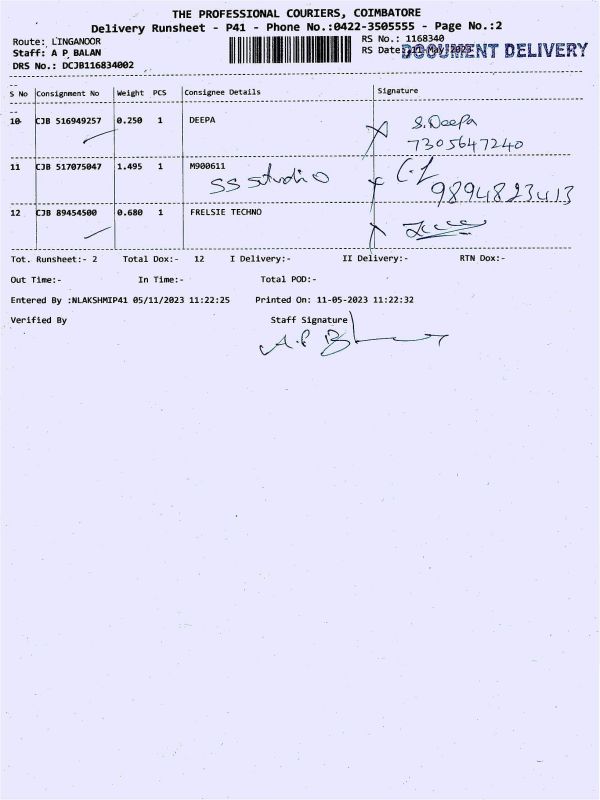 THE PROFESSIONAL COURIERS, COIMBATORE
Delivery Runsheet - P41 - Phone No.:0422-3505555 - Page No.:2
Route: LINGANOOR
RS No.: 1168340
Staff: A P BALAN
RS Date: 11-May-2023
DOCUMENT DELIVERY
DRS No.: DCJB116834002
S No Consignment No Weight PCS Consignee Details Signature
10 CJB 516949257 0.250 1 DEEPA S.Deepa
7305647240
11 CJB 517075047 1.495 1 M900611
SS Studio 9894823413
12 CJB 89454500 0.680 1 FRELSIE TECHNO
Tot. Runsheet:- 2 Total Dox:- 12 I Delivery:- II Delivery:- RTN Dox:-
Out Time:- In Time:- Total POD:-
Entered By :NLAKSHMIP41 05/11/2023 11:22:25 Printed On: 11-05-2023 11:22:32
Verified By Staff Signature
A.P